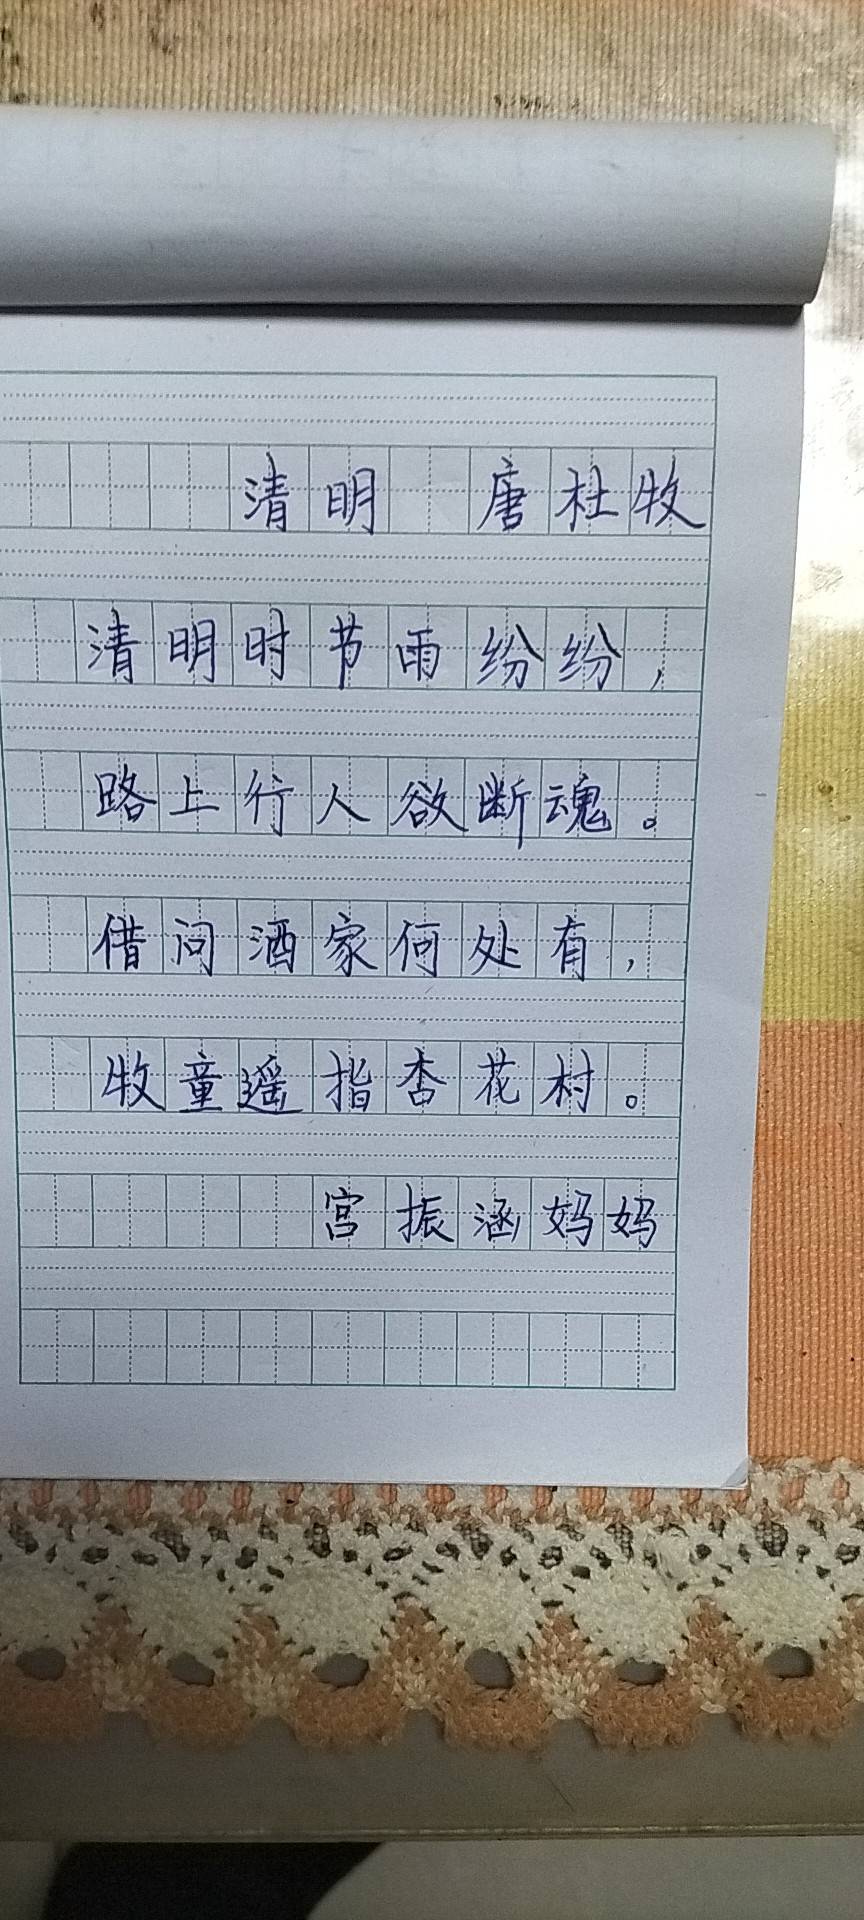 清明 唐杜牧
清明时节雨纷纷,
路上行人欲断魂。
借问酒家何处有,
牧童遥指杏花村。
宫振涵妈妈